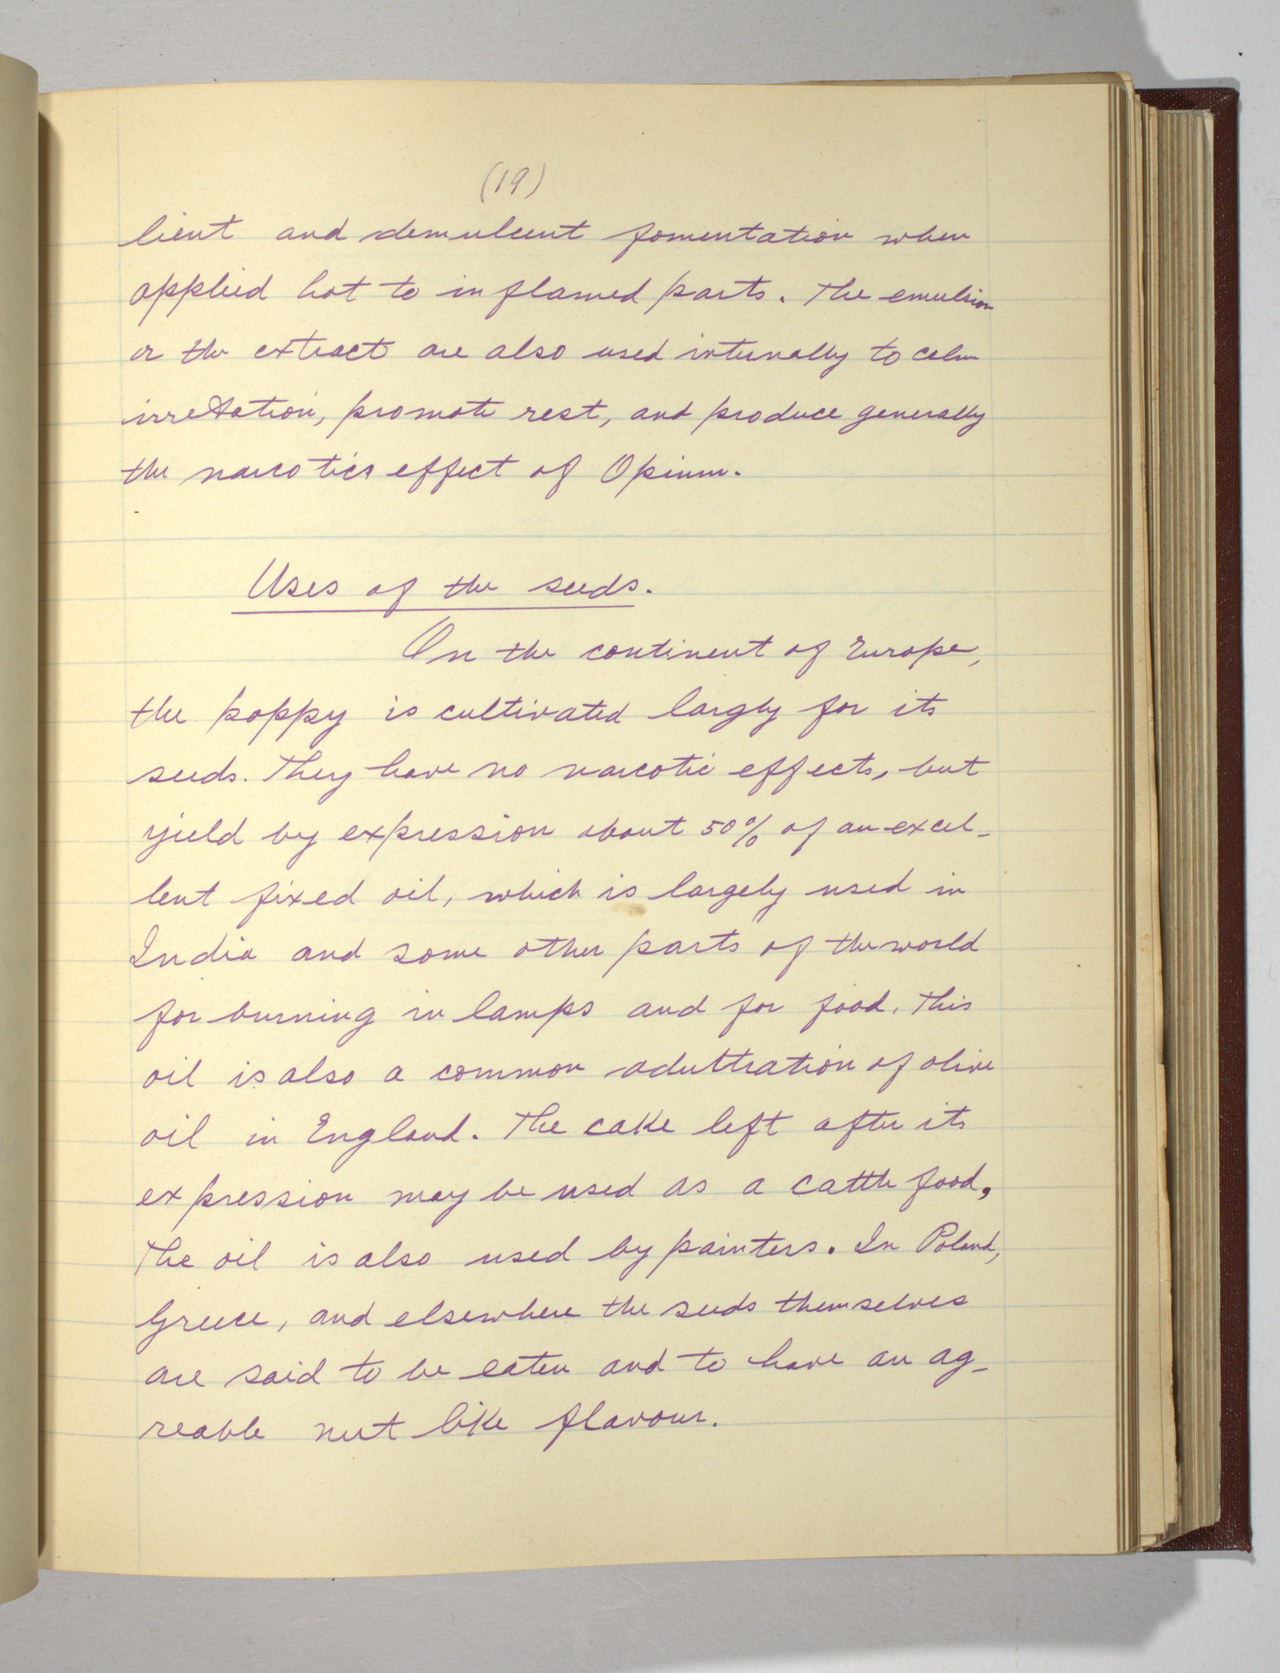 (19)
lient and demulcent fomentation when
applied hot to inflamed parts. The emulsion
or the extract are also used internally to calm
irretation, promote rest, and produce generally
the narcotics effect of Opium.
Uses of the seeds.
On the continent of Europe,
the poppy is cultivated largly for its
seeds. They have no narcotic effects, but
yield by expression about 50% of an excel-
lent fixed oil, which is largely used in
India and some other parts of the world
for burning in lamps and for food. This
oil is also a common adultration of olive
oil in England. The cake left after its
expression may be used as a cattle food,
The oil is also used by painters. In Poland,
Greece, and elsewhere the seeds themselves
are said to be eaten and to have an ag-
reable nut like flavour.